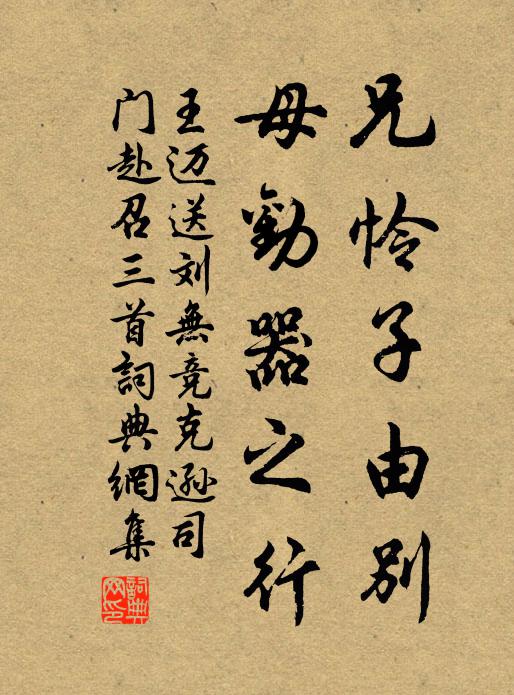 兄怜子由别
母勸器之行
王迈送刘無竞克遜司
门赴召三首詞典網集
詞典
网印